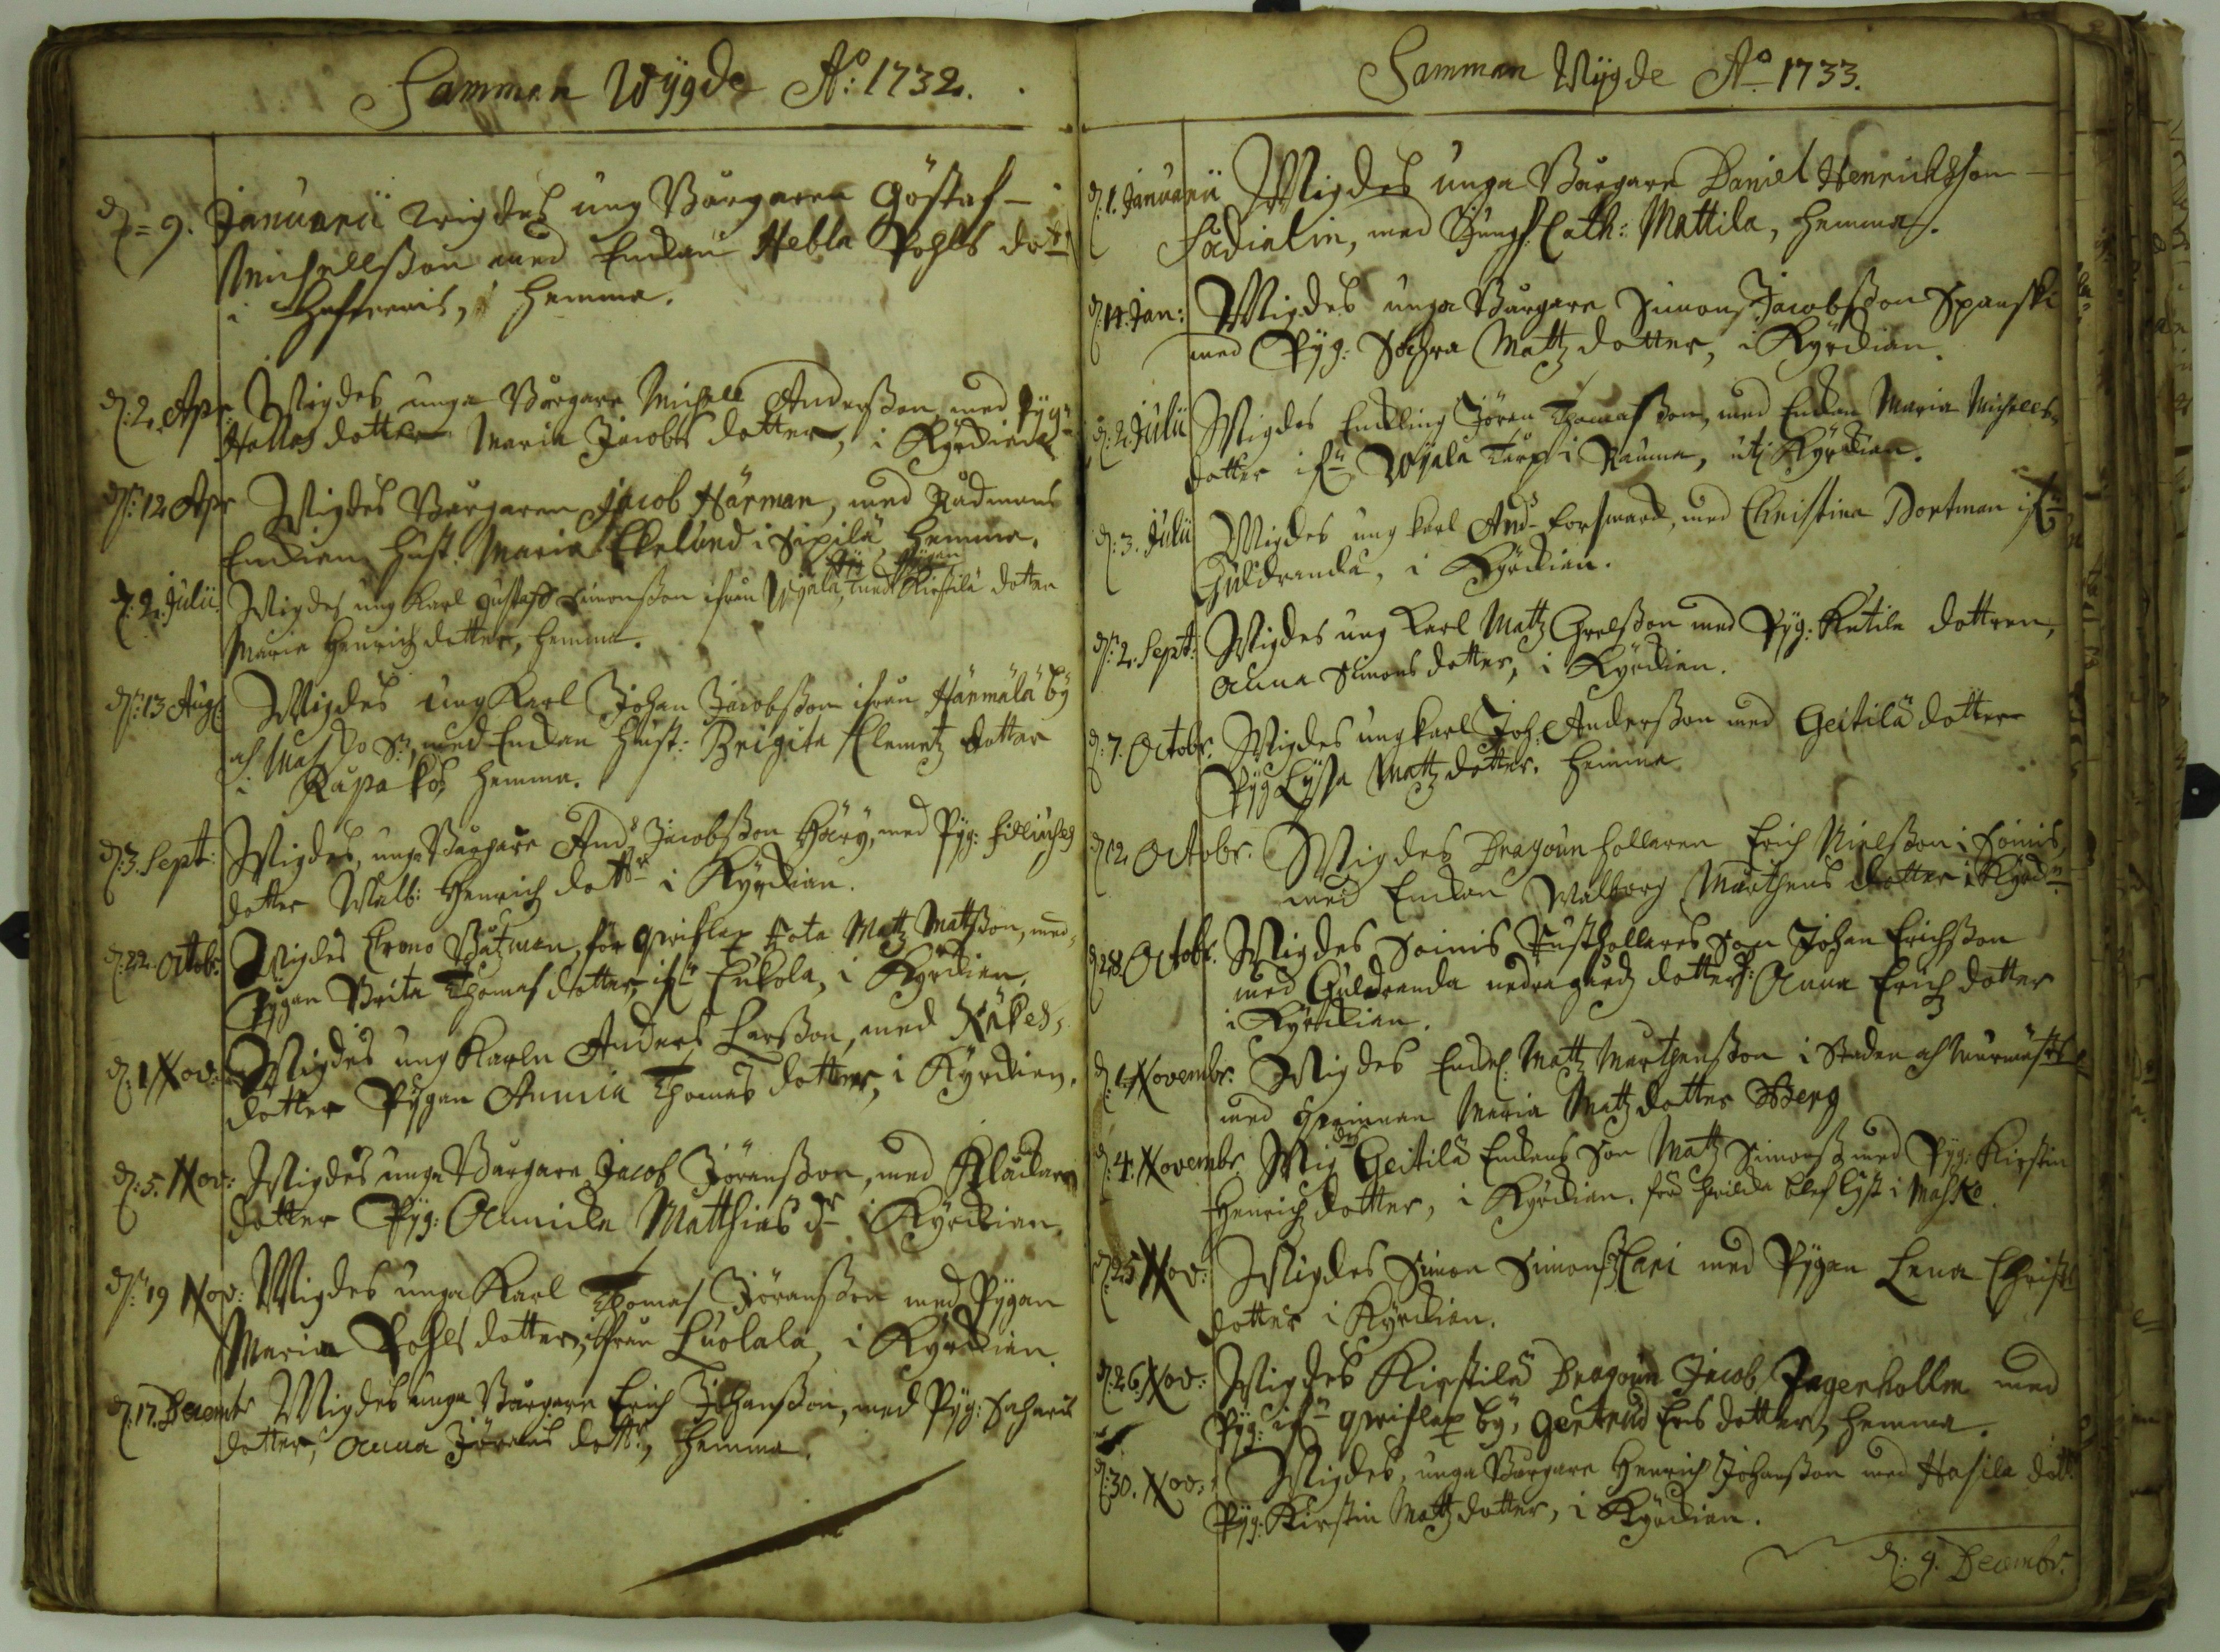 Samman Wÿgde Aº: 1732.
d: 9. Januarii wigdes ung Borgaren Göstaf
Michellsson med Enckan Hebla Pohls dottr
i hemma.
d: 2. Apr. Wigdes unga Borgare Michell Andersson med Pÿg:
dotter Maria Jacobs dotter, i Kÿrckian
d: 12 Apr Wigdes Borgaren Jacob Härman, med Rådmans
Enckian hust. Maria Ekelund i Sipilä hemma.
d: 2. Julii. Wigdes ung Karl Gustaff Simonsson ifrån Wÿala, med Kirstilä dotter
Pÿgan
Maria Henrichz dotter, hemma.
d: 13 Aug: Wigdes ung Karl Johan Jacobsson ifrån Härmälä bÿ
af med Enckan hust: Brigita Clemetz dotter
i Rapa hemma.
d: 3. Sept: Wigdes, unga Borgare Andrs Jacobsson Härÿ, med Pÿg:
dotter Walb: Henrichz dottr i Kÿrckian.
d: 22. Octob: Wigdes Crono Båtzman, för Qwislax Rota Matz Matsson, med
Pÿgan Brita Thomas dotter, ifrn Eukola, i Kÿrckian.
d: 1 Nov: Wigdes ung Karln Anders Larsson, med
dotter Pÿgan Annicka Thomas dotter, i Kÿrckian.
d: 5. Nov: Wigdes unga Borgare Jacob Jöransson, med Klåckare
dotter Pÿg: Annicka Matthias dr i Kÿrckian.
d: 19 Nov: Wigdes unga Karl Thomas Jöransson med Pÿgan
Maria Pohls dotter, ifrån Luolala, i Kÿrckian.
d. 17. Decembr Wigdes unga Borgare Erich Johansson, med Pÿg: Saharis
dotter, Anna Jörans dottr, hemma.
Samman Wÿgde Aº 1733.
d. 1. Januarii Wigdes unga Borgare Daniel Henrichsson
Sadialin, med Jungf. Cath: Mattila, hemma.
d. 14. Jan: Wigdes unga Borgare Simon Jacobsson Spanski
med Pÿg: Sophia Matz dotter, i Kÿrckian.
d. 2. Julii Wigdes Enckling Jöran Thomasson, med Enckan Maria Michels
dotter ifrn Wÿala Torp i Rauma, uti Kÿrckian.
d: 3. Julii Wigdes ung karl Ands Forsmard, med Christina Dortman ifrn
Guldranda, i Kÿrckian.
d: 2. Sept: Wigdes ung Karl Matz Grelsson med Pÿg: Ketila dottren,
Anna Simons dotter, i Kÿrckian.
d: 7. Octobr. Wigdes ung karl Joh: Andersson med Geitilä dotter
Pÿg Lÿsa Matz dotter. hemma
d 12 Octobr. Wigdes Dragoun hollaren Erich Nielsson i Soinis,
med Enckan Walborg Mårthens dotter i Kÿrckn
d 28. Octobr. Wigdes Soinis Rusthollares Son Johan Erichsson
med Guldranda nedregårdz dotter: Anna Erich dotter
i Kÿrckian.
d. 1. Novembr. Wigdes Enckl: Matz Mårthensson i Staden
med Maria Matz dotter Berg
d: 4. Novembr Wigdes Geitilä Enckans Son Matz Simonss: med Pÿg: Kirstin
Henrich dotter, i Kÿrckian. blef lÿst i Masko.
d 25 Nov: Wigdes Simon Simonss: Cari med Pÿgan Lena Christ
dotter i Kÿrckian.
d. 26. Nov: Wigdes Kirstilä Dragoun Jacob Jagerholm med
Pÿg: ifrn Qwislax bÿ, Gertrud Ers dotter, hemma.
d: 30. Nov: Wigdes, unga Borgare Henrich Johansson med Hasila dott:
Pÿg: Kirstin Matz dotter, i Kÿrckian.
d: 9. Decembr.